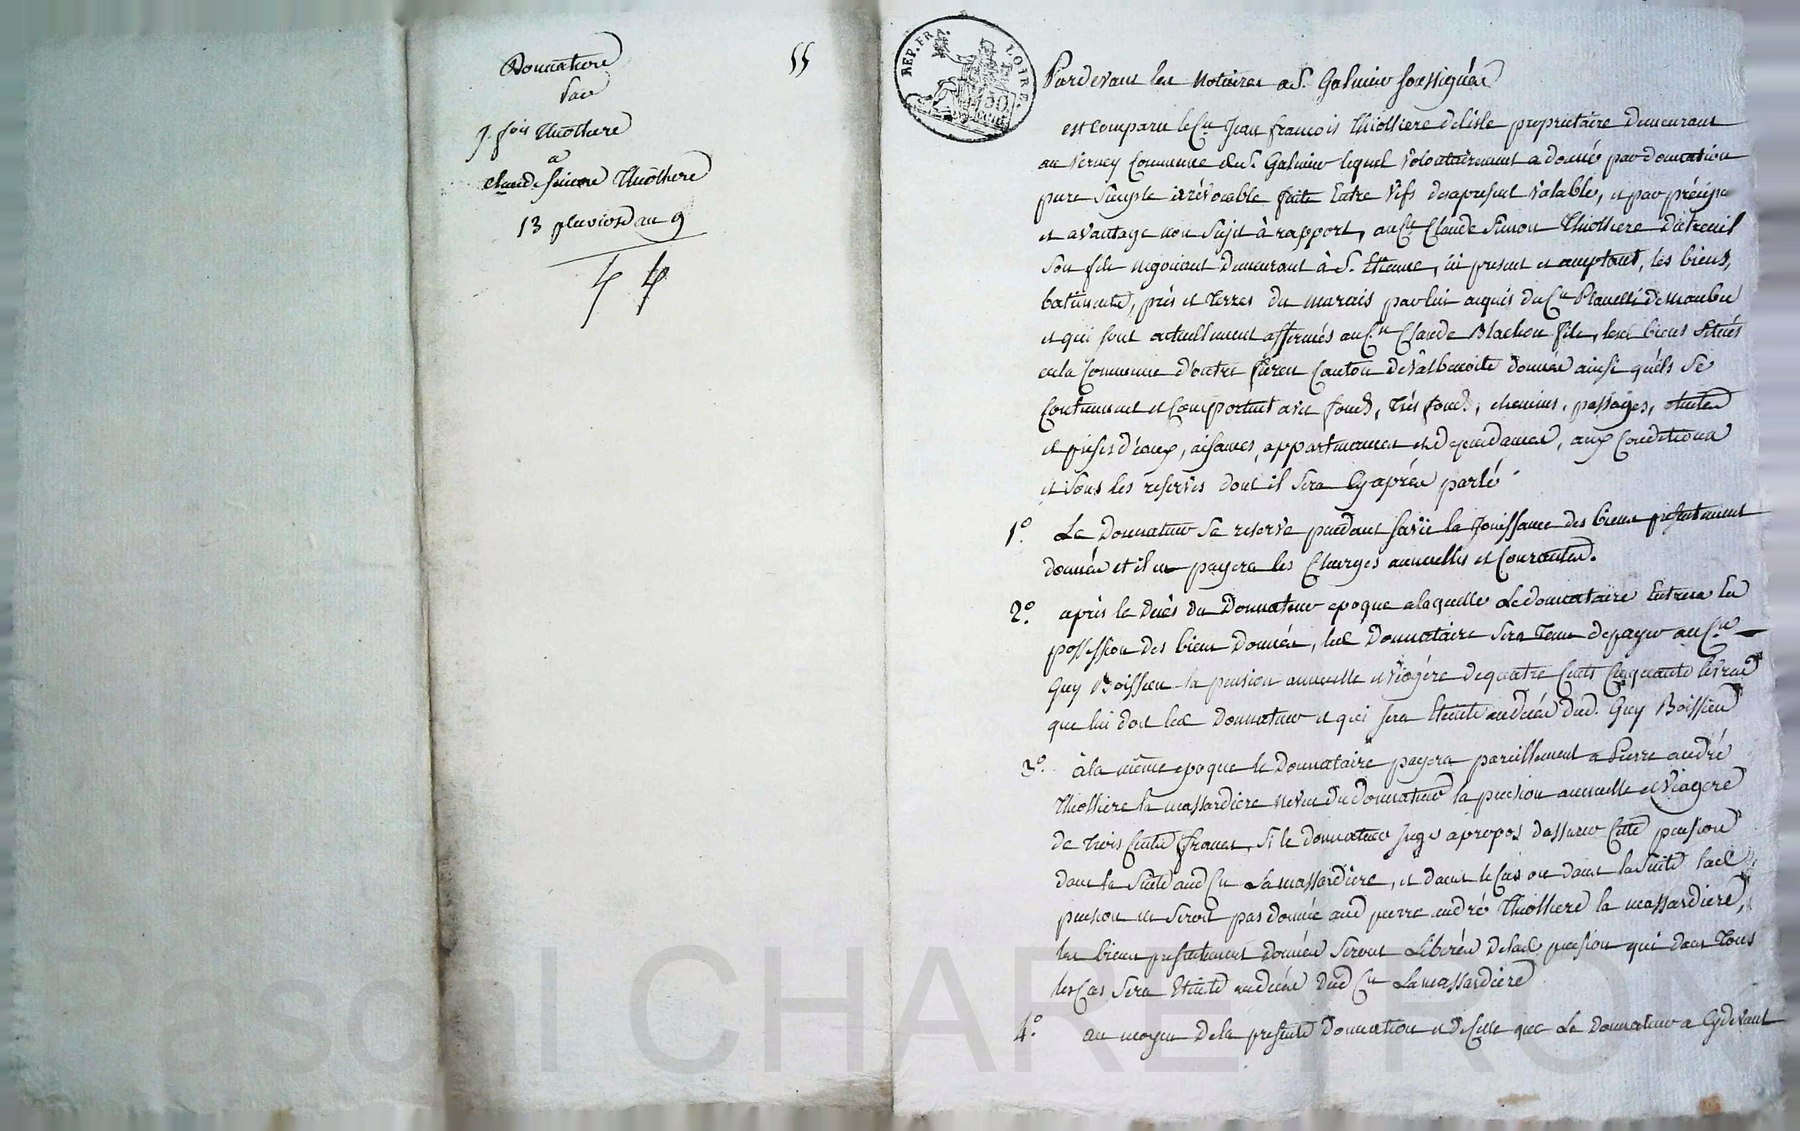 Donnation
par
J. fois Thiolliere
a
claude Simon Thiolliere
13 pluviose an 9
55
REP. FR. LOIRE.
50 cent
Pardevant les Notaires a St. Galmier soussignés
est Comparu le Cn Jean francois Thiolliere delisle proprietaire Demeurant
au verney Commune de St. Galmier lequel volontairement a donné par donnation
pure Simple irrévocable faite Entre vifs desapresent valable, et par préciput
et avantage non Sujet à rapport, au Cn Claude Simon Thiolliere Dutreuil
Son fils negociant Demeurant à St. Etienne, ici present et aceptant, les biens,
batiments, prés et terres du marais par lui acquis du Cn Planelli de maubec
et qui sont actuellement affermés au Cn Claude Blachon fils, lesd biens Situés
en la Commune d'outre furen Canton de valbenoite donnés ainsi quels Se
Contiennent et Comportent avec fonds, tres fonds, chemins, passages,
et prises d'eaux, aisances, appartenances et dependances, aux Conditions
et Sous les reserves dont il Sera Cyaprés parlé
1.° Le Donnateur Se reserve pendant Savie la Jouissance des biens presentement
donnés et il en payera les Charges annuelles et Courantes.
2.° aprés le decés du Donnateur epoque alaquelle Le donnataire Entrera En
possession des biens Donnés, led Donnataire Sera tenu depayer au Cn
Guy Boissieu la pension annuelle et viagére de quatre Cents Cinquante livres
que lui doit led Donnateur et qui Sera Eteinte au décés dud. Guy Boissieu
3.° àla même epoque le Donnataire payera pareillement a Pierre andré
Thiolliere la massardiere neveu du donnateur la pension annuelle et viagere
de trois Cents francs, Si le donnateur Juge apropos dassurer Cette pension
dans la Suite aud Cn Lamassardiere, et dans le Cas ou dans la Suite lad
pension ne Seroit pas donnée aud pierre andré Thiolliere la massardiere,
les biens presentement donnés Seront Libérés delad pension qui dans tous
les Cas Sera Eteinte au décés dud Cn Lamassardiere
4.° au moyen de la presente Donnation et de Celle que Le Donnateur a Cydevant
I CHARETRON